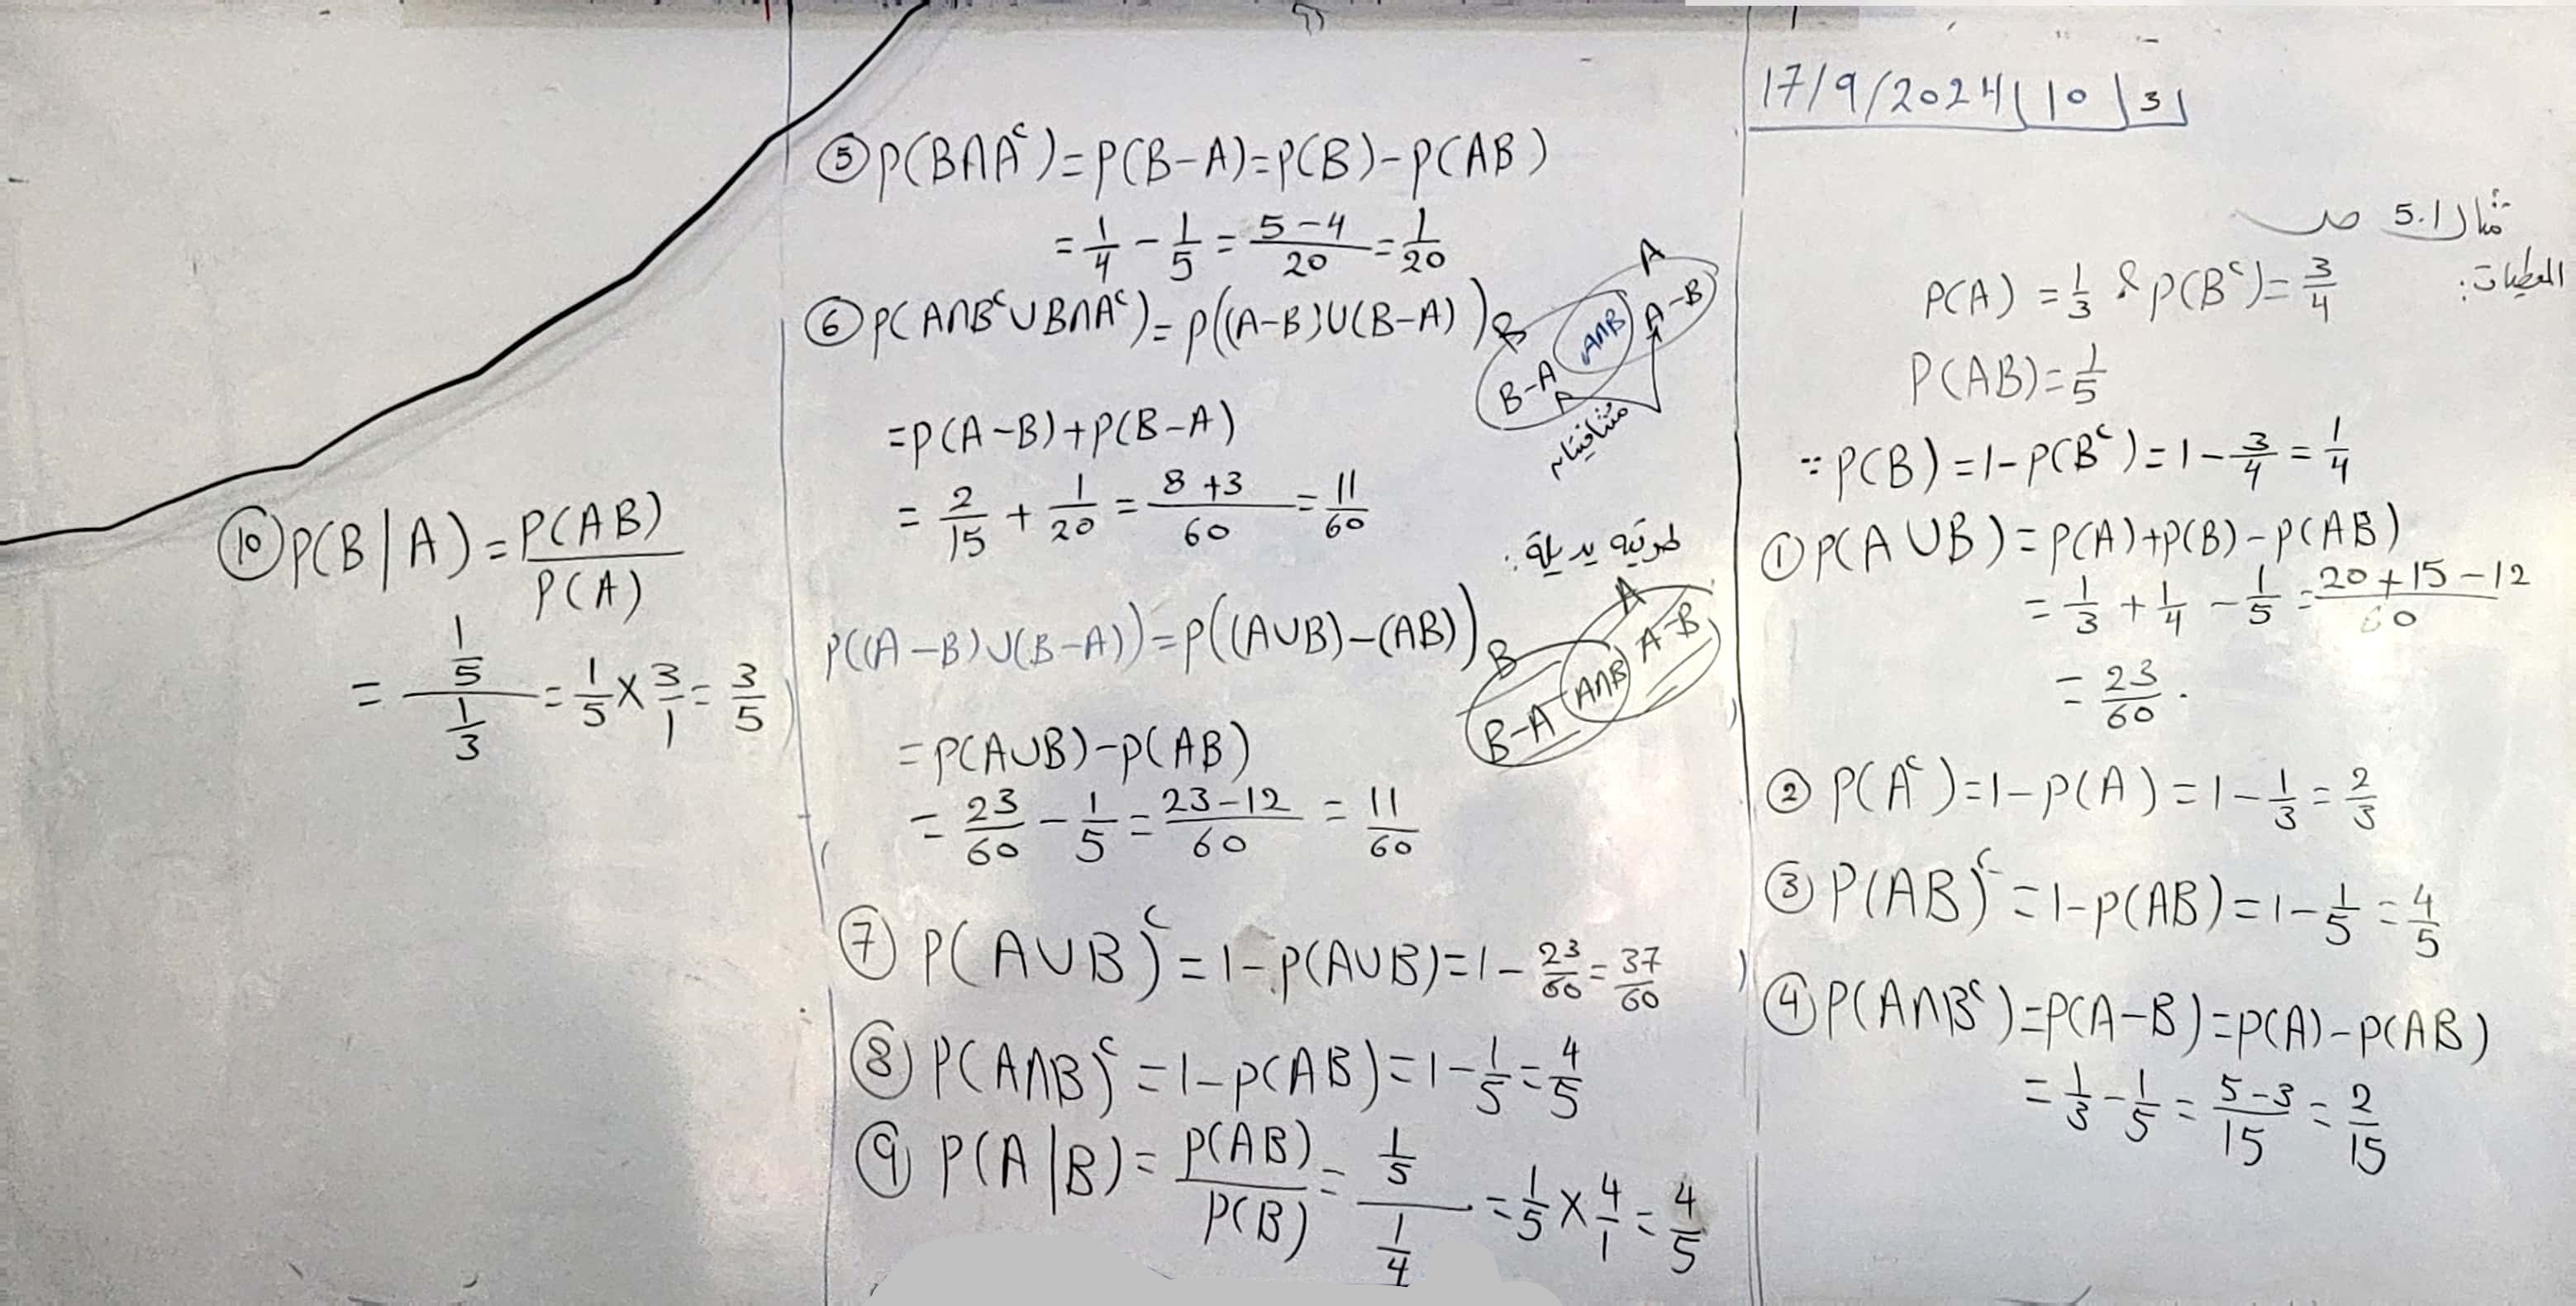 17/9/2024 | 10 | 3
مثال 5.1 ص
المعطيات:
P(A) = 1/3 & P(Bᶜ) = 3/4
P(AB) = 1/5
∵ P(B) = 1 - P(Bᶜ) = 1 - 3/4 = 1/4
① P(A ∪ B) = P(A) + P(B) - P(AB)
= 1/3 + 1/4 - 1/5 = (20 + 15 - 12)/60
= 23/60 .
② P(Aᶜ) = 1 - P(A) = 1 - 1/3 = 2/3
③ P(AB)ᶜ = 1 - P(AB) = 1 - 1/5 = 4/5
④ P(A∩Bᶜ) = P(A-B) = P(A) - P(AB)
= 1/3 - 1/5 = (5-3)/15 = 2/15
⑤ P(B∩Aᶜ) = P(B-A) = P(B) - P(AB)
= 1/4 - 1/5 = (5-4)/20 = 1/20
⑥ P(A∩Bᶜ ∪ B∩Aᶜ) = P((A-B)∪(B-A))
A
B
A-B
A∩B
B-A
متنافيتان
= P(A-B) + P(B-A)
= 2/15 + 1/20 = (8+3)/60 = 11/60
طريقة بديلة:
P((A-B)∪(B-A)) = P((A∪B)-(AB))
A
B
A-B
A∩B
B-A
= P(A∪B) - P(AB)
= 23/60 - 1/5 = (23-12)/60 = 11/60
⑦ P(A∪B)ᶜ = 1 - P(A∪B) = 1 - 23/60 = 37/60
⑧ P(A∩B)ᶜ = 1 - P(AB) = 1 - 1/5 = 4/5
⑨ P(A|B) = P(AB)/P(B) = (1/5)/(1/4) = 1/5 × 4/1 = 4/5
⑩ P(B|A) = P(AB)/P(A)
= (1/5)/(1/3) = 1/5 × 3/1 = 3/5